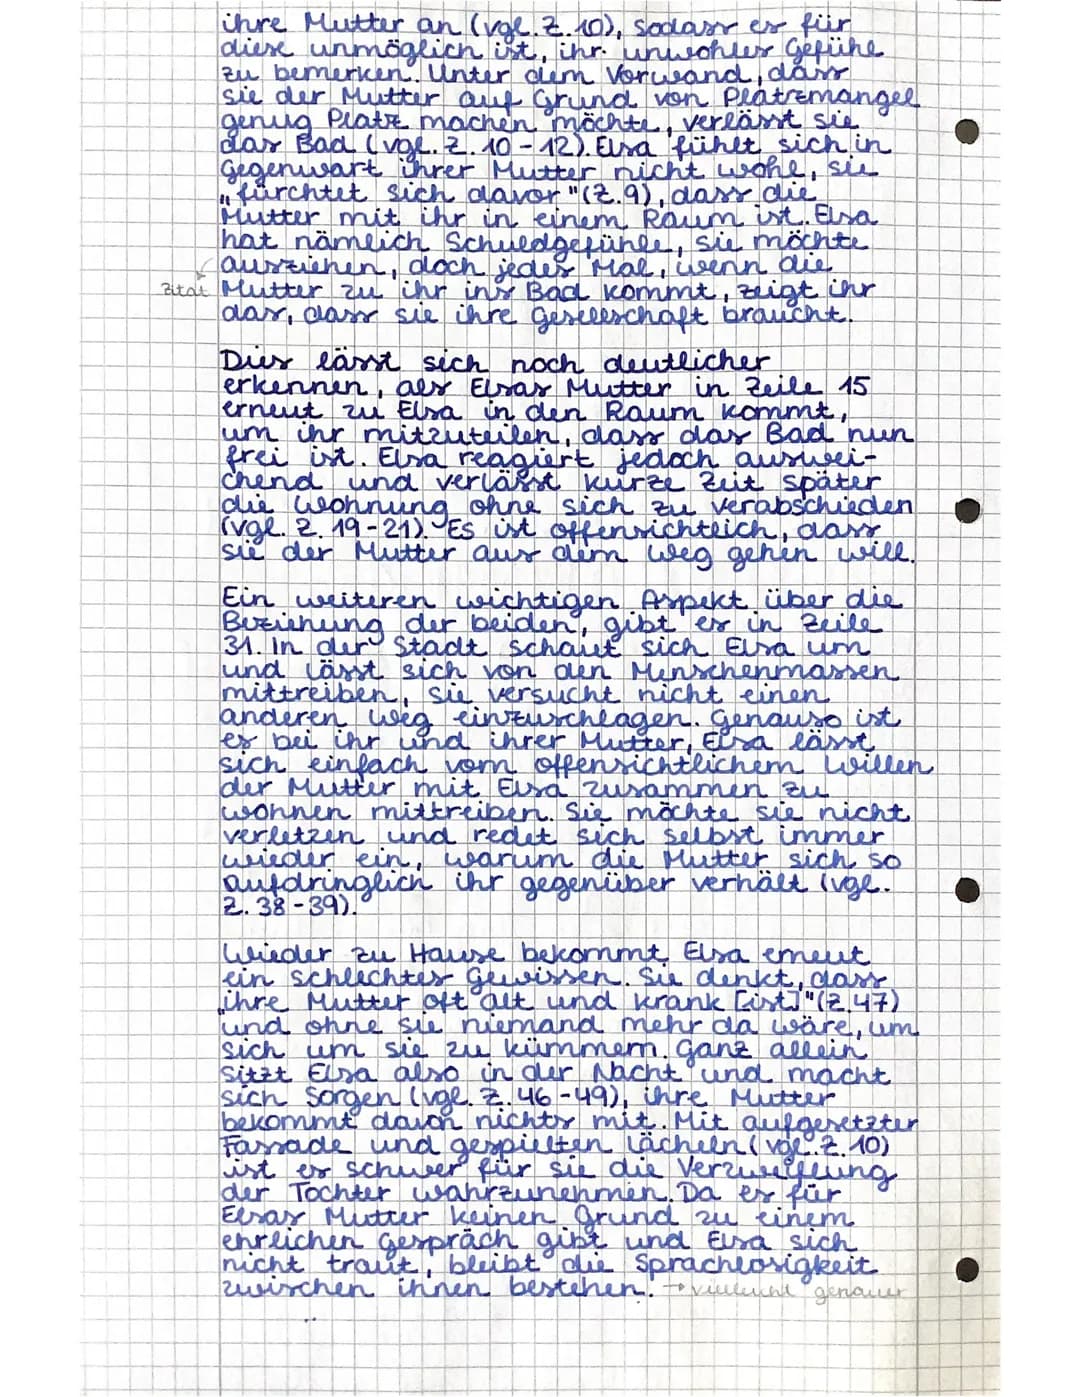 ihre Mutter an (vgl. Z. 10), sodass es für
diese unmöglich ist, ihr unwohles Gefühl
zu bemerken. Unter dem Vorwand, dass
sie der Mutter auf Grund von Platzmangel
genug Platz machen möchte, verlässt sie
das Bad (vgl. Z. 10-12). Elsa fühlt sich in
Gegenwart ihrer Mutter nicht wohl, sie
„fürchtet sich davor"(Z.9), dass die
Mutter mit ihr in einem Raum ist. Elsa
hat nämlich Schuldgefühle, sie möchte
ausziehen, doch jedes Mal, wenn die
Zitat Mutter zu ihr ins Bad kommt, zeigt ihr
das, dass sie ihre Gesellschaft braucht.
Dies lässt sich noch deutlicher
erkennen, als Elsas Mutter in Zeile 15
erneut zu Elsa in den Raum kommt,
um ihr mitzuteilen, dass das Bad nun
frei ist. Elsa reagiert jedoch auswei-
chend und verlässt kurze Zeit später
die Wohnung ohne sich zu verabschieden
(vgl. Z. 19-21). Es ist offensichtlich, dass
sie der Mutter aus dem Weg gehen will.
Ein weiteren wichtigen Aspekt über die
Beziehung der beiden, gibt es in Zeile
31. In der Stadt schaut sich Elsa um
und lässt sich von den Menschenmassen
mittreiben, sie versucht nicht einen
anderen Weg einzuschlagen. Genauso ist
es bei ihr und ihrer Mutter, Elsa lässt
sich einfach vom offensichtlichem Willen
der Mutter mit Elsa zusammen zu
wohnen mittreiben. Sie möchte sie nicht
verletzen und redet sich selbst immer
wieder ein, warum die Mutter sich so
aufdringlich ihr gegenüber verhält (vgl.
Z. 38-39).
Wieder zu Hause bekommt Elsa erneut
ein schlechtes Gewissen. Sie denkt, dass
„ihre Mutter oft alt und krank [ist]"(Z.47)
und ohne sie niemand mehr da wäre, um
sich um sie zu kümmern. Ganz allein
sitzt Elsa also in der Nacht und macht
sich Sorgen (vgl. Z. 46-49), ihre Mutter
bekommt davon nichts mit. Mit aufgesetzter
Fassade und gespielten Lächeln (vgl. Z. 10)
ist es schwer für sie die Verzweiflung
der Tochter wahrzunehmen. Da es für
Elsas Mutter keinen Grund zu einem
ehrlichen Gespräch gibt und Elsa sich
nicht traut, bleibt die Sprachlosigkeit
zwischen ihnen bestehen. → vielleicht genauer